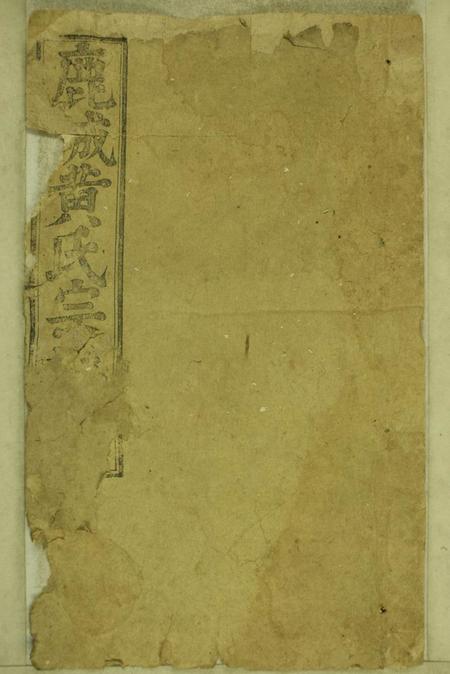 鹿城黃氏宗